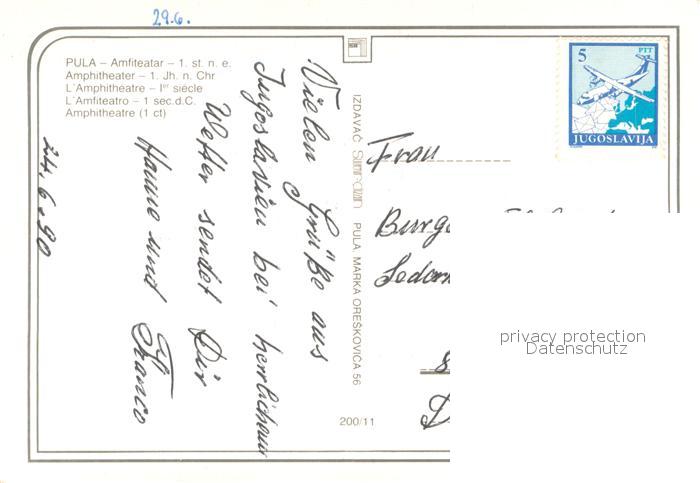 29.6.
PULA – Amfiteatar – 1. st. n. e.
Amphitheater – 1. Jh. n. Chr
L'Amphithéatre – Ier siécle
L'Amfiteatro – 1 sec. d.C.
Amphiteatre (1 ct)
Vielen Grüße aus
Jugoslavien bei herrlichem
Wetter sendet Dir
Hanne und Franco
24.6.90
IZDAVAČ PULA, MARKA OREŠKOVIĆA 56
200/11
5 PTT
JUGOSLAVIJA
Frau
privacy protection
Datenschutz